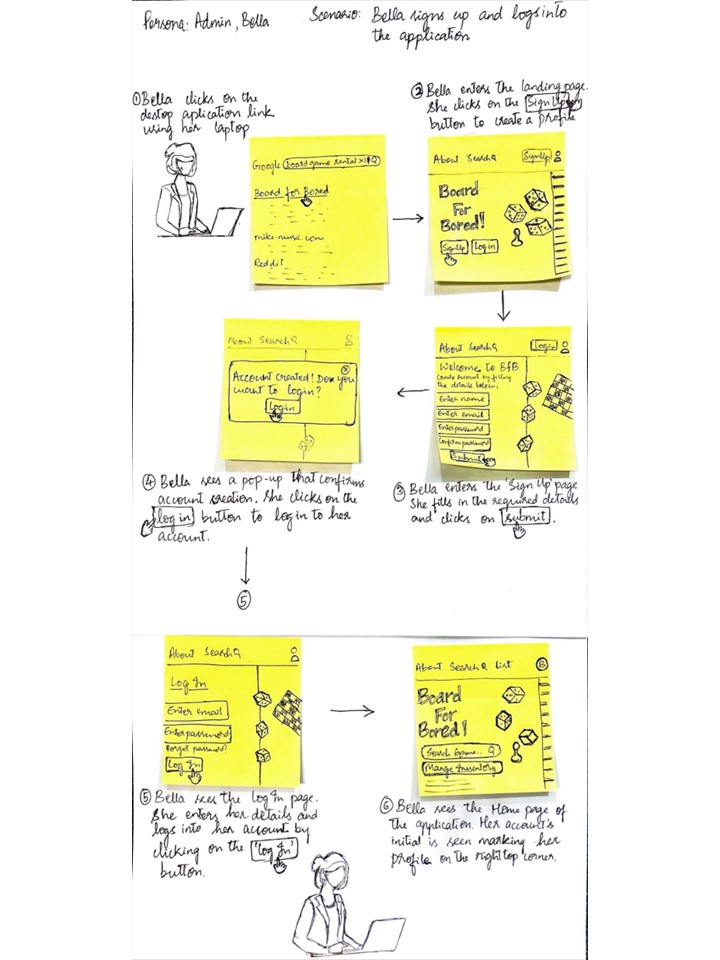 Persona: Admin, Bella
Scenario: Bella signs up and logs into
the application
① Bella clicks on the
destop aplication link
using her laptop
Google board game rental
Board for Bored
Reddit
② Bella enters the landing page.
She clicks on the Sign Up
button to create a profile
About Search
SignUp
Board
For
Bored!
SignUp Log in
About Search
Login
Welcome to BfB
Create account by filling
the details below.
Enter name
Enter email
Enter password
Confirm password
Submit
③ Bella enters the 'Sign Up' page
She fills in the required details
and clicks on submit.
About Search
Account created! Do you
want to login?
Login
④ Bella sees a pop-up that confirms
account creation. She clicks on the
log in button to log in to her
account.
⑤
About Search
Log In
Enter email
Enter password
Forgot password?
Log In
⑤ Bella sees the Log In page.
She enters her details and
logs into her account by
clicking on the 'log In'
button.
About Search List B
Board
For
Bored!
Search Game..
Mange Inventory
⑥ Bella sees the Home page of
the application. Her account's
initial is seen marking her
profile on the right top corner.